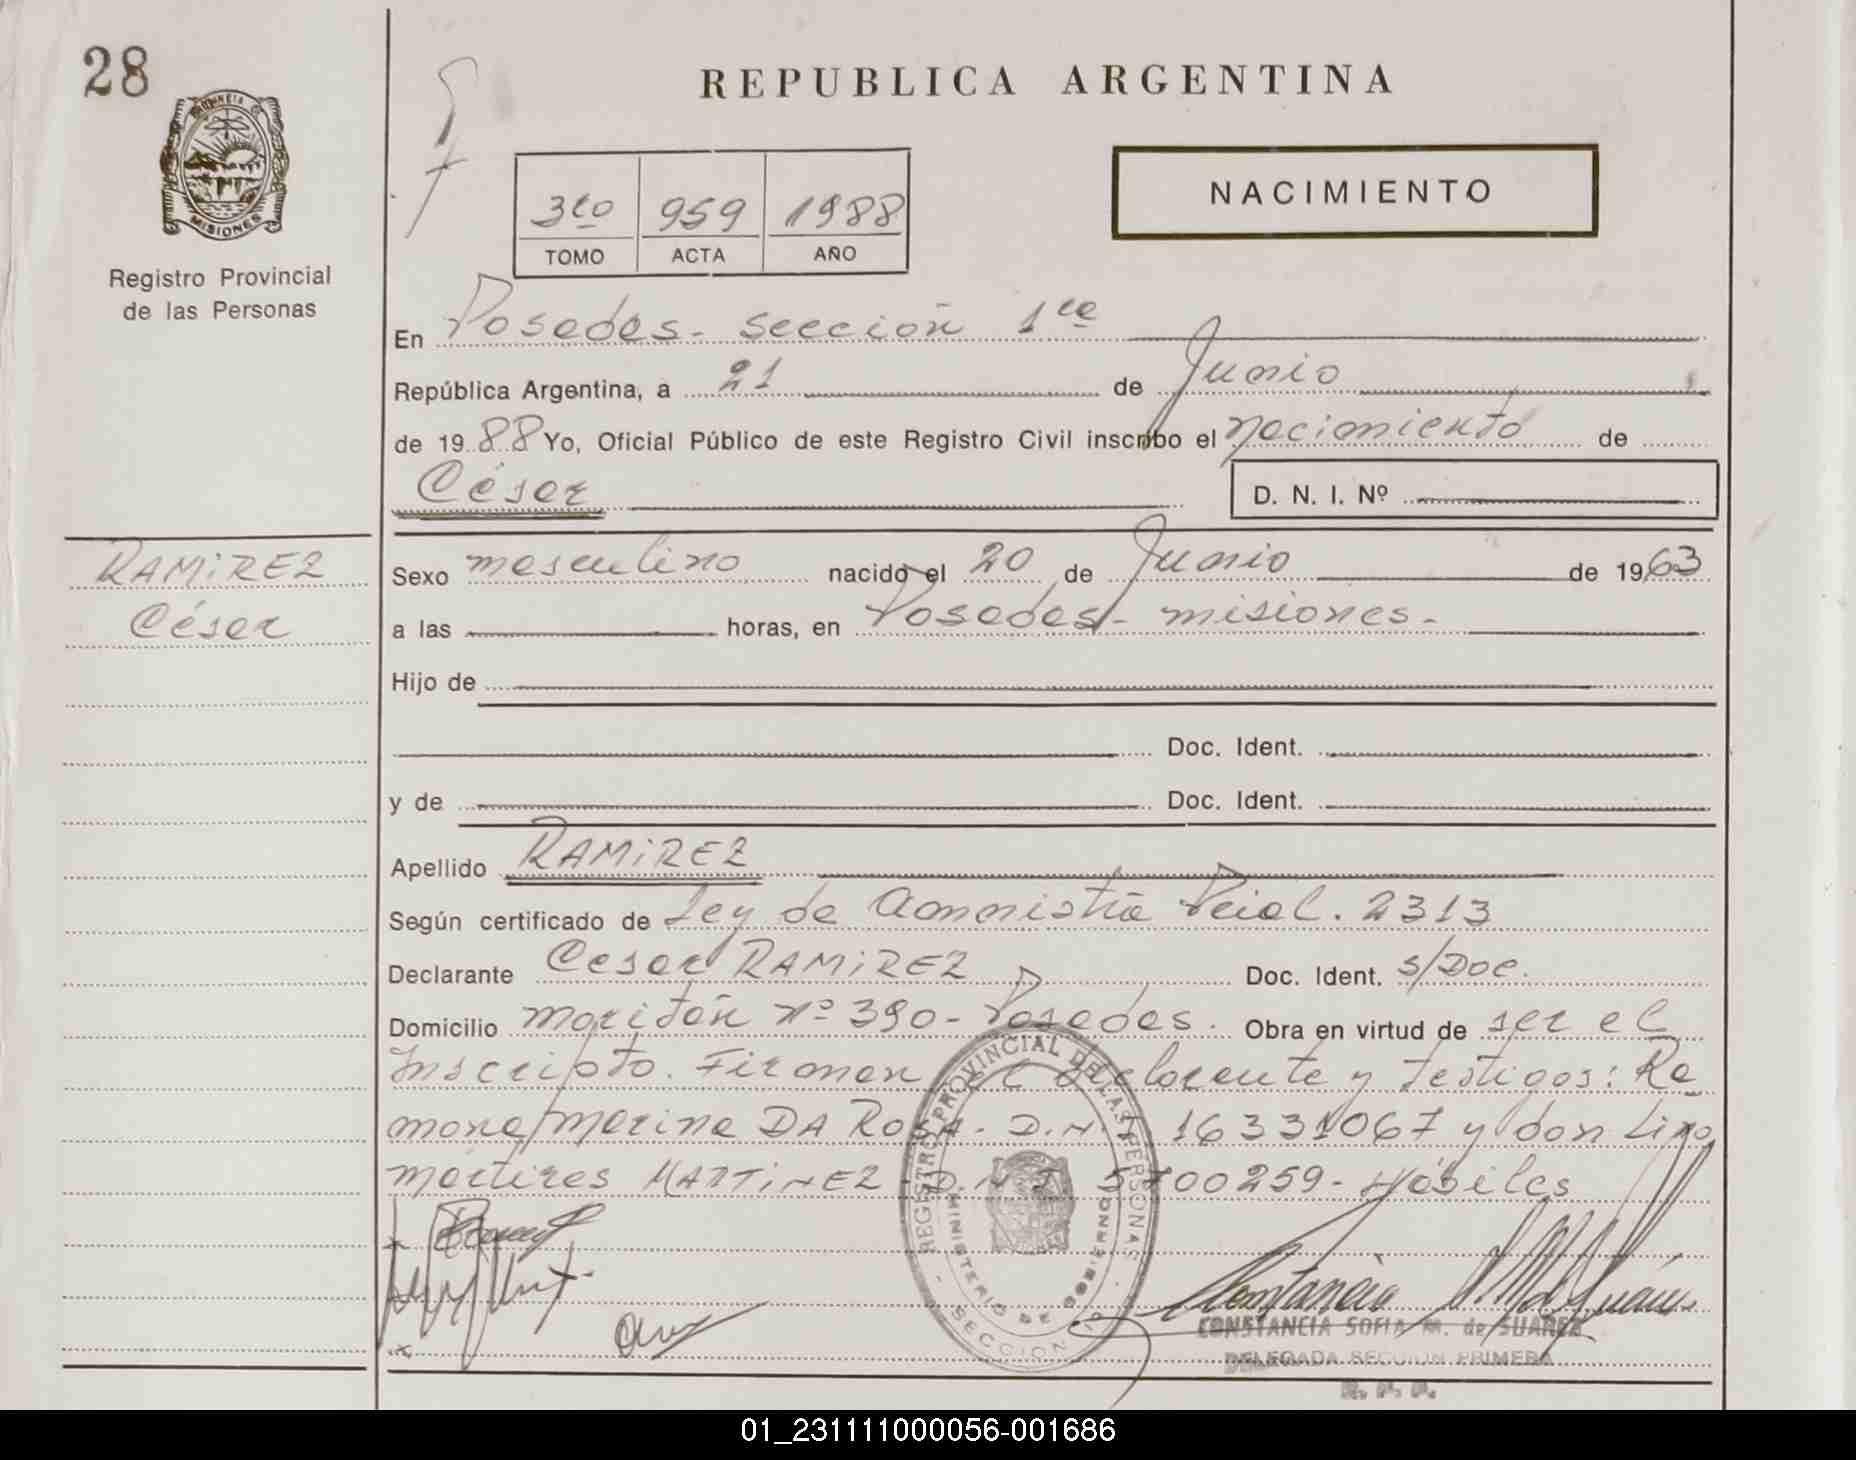 28
REPUBLICA ARGENTINA
PROVINCIA DE MISIONES
Registro Provincial
de las Personas
3ro 959 1988
TOMO ACTA AÑO
NACIMIENTO
En Posadas - sección 1ra
República Argentina, a 21 de Junio
de 1988 Yo, Oficial Público de este Registro Civil inscribo el nacimiento de
César D. N. I. Nº
RAMIREZ
César
Sexo masculino nacido el 20 de Junio de 1963
a las horas, en Posadas - misiones.
Hijo de
Doc. Ident.
y de Doc. Ident.
Apellido RAMIREZ
Según certificado de Ley de Amnistía Pcial. 2313
Declarante Cesar RAMIREZ Doc. Ident. s/Doc.
Domicilio Nº 390 - Posadas. Obra en virtud de ser el
Inscripto. Firman el declarante y testigos: Ra
mona Marina DA ROSA. D.N.I 16331067 y don Lino
Martires MARTINEZ D.N.I 5700259 - Hábiles
REGISTRO PROVINCIAL DE LAS PERSONAS
MINISTERIO DE GOBIERNO
SECCION
CONSTANCIA SOFIA M. de SUAREZ
DELEGADA SECCION PRIMERA
R. P. P.
01_231111000056-001686